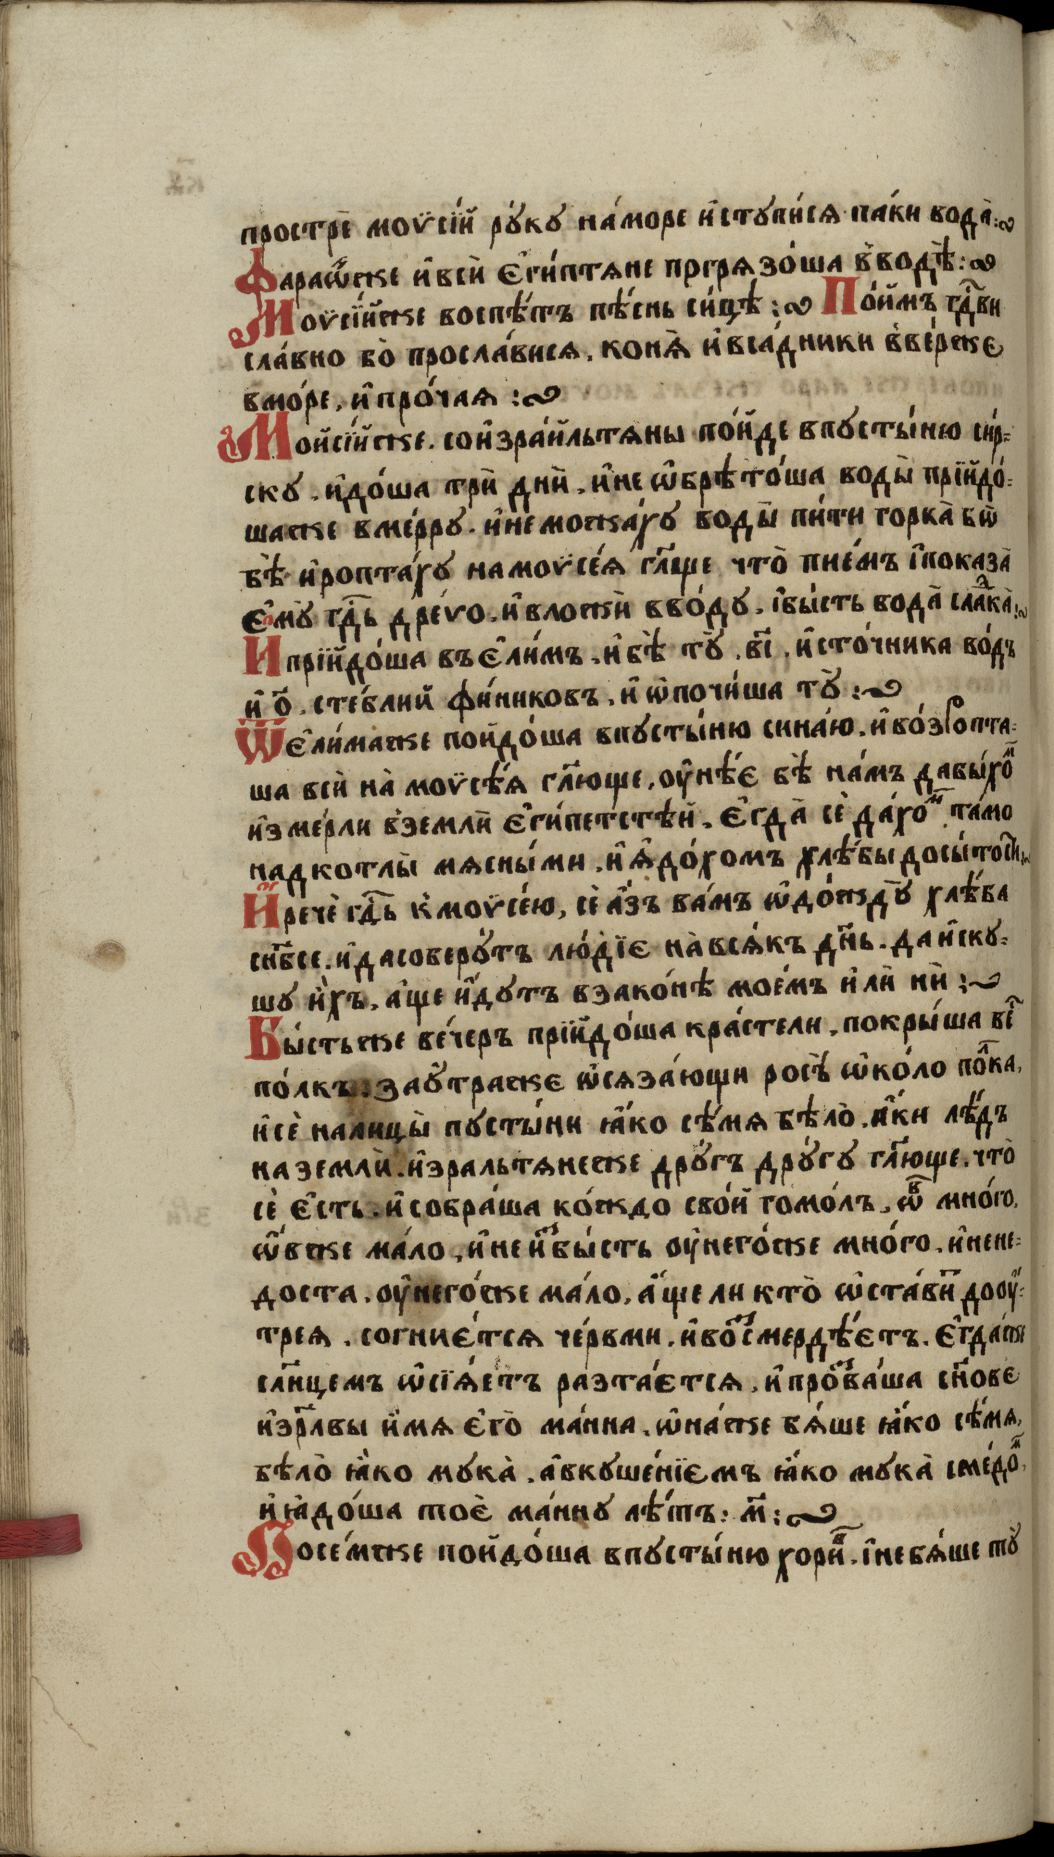 прострѐ моѵсі́й рꙋ́кꙋ на́море и҆стꙋпи́сѧ па́ки вода̀:~
Фараѡ́нже и҆всѝ є҆ги́птѧне погрѧзо́ша в̾водѣ̀:~
Моѵсі́йже воспѣ́тъ пѣ́снь си́це:~ По́имъ гдⷭ҇ви
сла́вно бо̀ просла́висѧ, конѧ̀ и҆вса́дники в̾ве́рже
вмо́ре, и҆про́чаѧ:~
Мойсі́йже. соизра́ильтѧны по́йде впꙋсты́ню си́р-
скꙋ. и҆до́ша трѝ днѝ. и҆не ѡ҆брѣто́ша воды̀ прїидо́-
шаже вме́ррꙋ. и҆неможа́хꙋ воды̀ пи́ти горка̀ бѡ
бѣ̀ и҆ропта́хꙋ намоѵсе́ѧ гл҃юще что̀ пие́мъ і҆показа̀
є҆мꙋ̀ гдⷭ҇ь дре́во. и҆вложѝ вво́дꙋ. і҆бы́сть вода̀ слаⷣка̀:~
И прїидо́ша въ є҆ли́мъ. и҆ бѣ̀ тꙋ̀ .в҃і. и҆сто́чника во́дъ
и҆ ѻ҃. сте́блий фи́никовъ. и҆ ѡ҆почи́ша тꙋ̀:~
Ѿ є҆ли́маже пойдо́ша впꙋсты́ню сина́ю. и҆во́зропта-
ша всѝ на̀ моѵсѣ́ѧ гл҃юще, ᲂу҆нѣ́є бѣ̀ на́мъ дабы́хоⷨ
и҆зме́рли в̾землѝ є҆ги́петстѣй. є҆гда̀ сѐ да́хоⷨ та́мо
надкотлы̀ мѧсны́ми. и҆ ꙗ҆до́хомъ хлѣ́бы досы́тости
И҆речѐ гдⷭ҇ь к̾моѵсе́ю, сѐ а҆́зъ ва́мъ ѡ҆до́ждꙋ̀ хлѣ́ба
снб҃се. и҆дасоберꙋ́тъ лю́дїє на̀всѧ́къ дн҃ь. да и҆скꙋ-
шꙋ и҆̀хъ, а҆́ще и҆́дꙋтъ взако́нѣ мое́мъ и҆лѝ нѝ:~
Бы́стьже ве́черъ прїидо́ша кра́стели, покры́ша ве́сⷭ҇
по́лкъ: заꙋ҆́траже ѡ҆сѧза́ющи росѣ̀ ѡ҆ко́ло поⷧ҇ка,
и҆сѐ налицы̀ пꙋсты́ни ꙗ҆́ко сѣ́мѧ бѣ́ло̀. а҆́ки лѣ́дъ
на землѝ. и҆зральтѧнеже дрꙋ́гъ дрꙋ́гꙋ гл҃юще. что̀
сѐ є҆́сть. и҆собра́ша ко́ждо сво́й гомо́лъ. ѡ҆́в мно́го,
ѡ҆́вже ма́ло, и҆не и҆ⷥбы́сть ᲂу҆него́же мно́го. и҆нене-
доста. ᲂу҆него́же ма́ло, а҆́ще ли кто̀ ѡ҆ста́виⷮ доᲂу҆́-
треѧ. согние́тсѧ че́рвми. и҆воⷥсмердѣ́єтъ. є҆гда́же
сл҃нцемъ ѡ҆сїѧ́етъ разта́єтсѧ, и҆проⷥва́ша сн҃ове
и҆зрл҃вы и҆́мѧ є҆го̀ ма́нна. ѡ҆на́же бѧ́ше ꙗ҆́ко сѣ́мѧ,
бѣло̀ ꙗ҆́ко мꙋка̀. а҆вкꙋше́нїємъ ꙗ҆́ко мꙋка̀ сме́доⷨ,
и҆ ꙗ҆до́ша тоє̀ ма́ннꙋ лѣ́тъ: м҃:~
Посе́мже пойдо́ша впꙋсты́ню хориⷡ҇. і҆небѧ́ше тꙋ̀